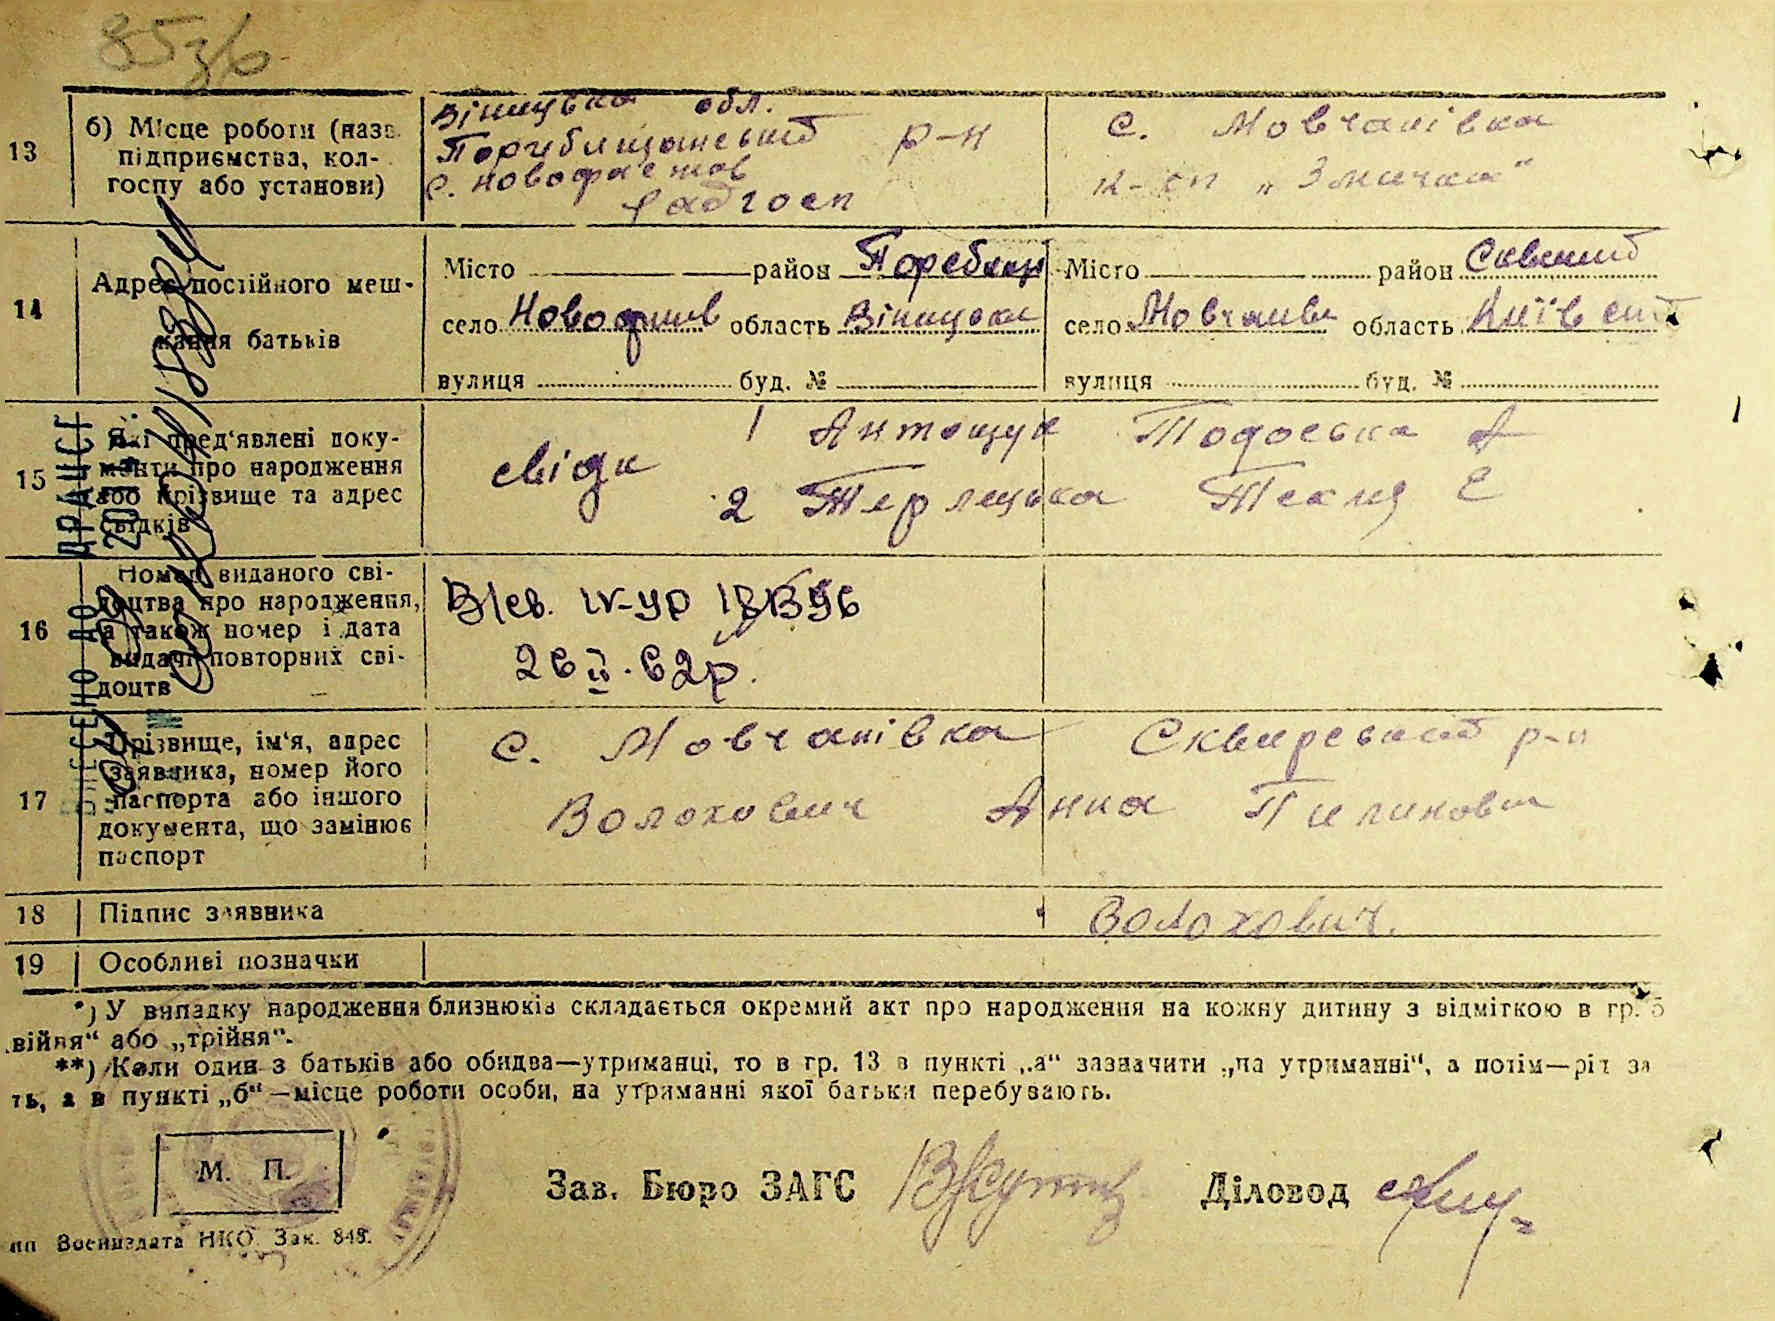 853/6
13 б) Місце роботи (назв. Віницька обл. с. Мовчанівка
підприємства, кол- р-н
госпу або установи) с. радгосп к-сп „Змичка“
14 Адрес постійного меш-
кання батьків
Місто район Пореблищ Місто район Сквиский
село область Вініцька село область Київский
вулиця буд. № вулиця буд. №
15 Які пред'явлені доку-
менти про народження
або прізвище та адрес
свідків
свідки 1 Антощук Тодоська А
2 Терлецька Текля Е
16 Номер виданого сві-
доцтва про народження,
а також номер і дата
видачі повторних сві-
доцтв
IV-УР
26 II. 62р.
17 Прізвище, ім'я, адрес
заявника, номер його
паспорта або іншого
документа, що замінює
паспорт
с. Мовчанівка Сквирский р-н
Волохович Анна Пилиповн
18 Підпис заявника Волохович.
19 Особливі позначки
ВНЕСЕНО ДО ДРАЦСГ
*) У випадку народження близнюків складається окремий акт про народження на кожну дитину з відміткою в гр. 5
війня“ або „трійня“.
**) Коли один з батьків або обидва—утриманці, то в гр. 13 в пункті „а“ зазначити „на утриманні“, а потім—рід за
ть, а в пункті „б“—місце роботи особи, на утриманні якої батьки перебувають.
М. П.
Зав. Бюро ЗАГС Діловод
Воениздата НКО Зак. 848.